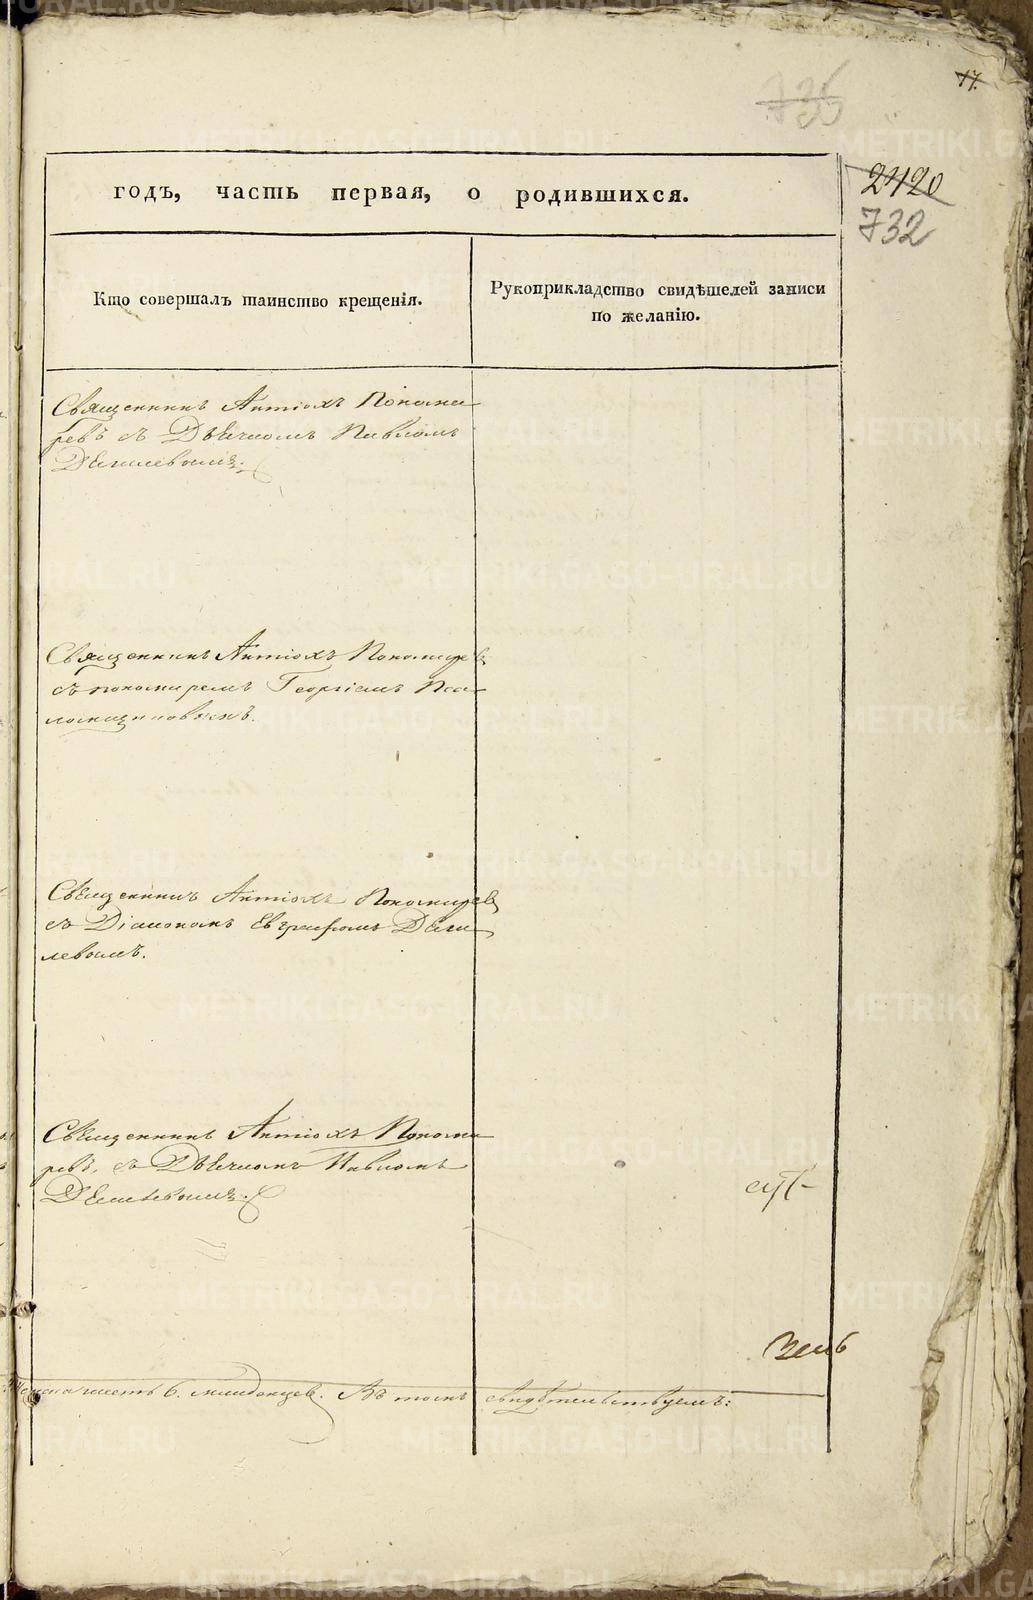 735
17.
годъ, часть первая, о родившихся.
2420
732
Кто совершалъ таинство крещенія.
Рукоприкладство свидѣтелей записи
по желанію.
Священникъ Антіохъ Понома
ревъ съ Дьячкомъ Павломъ
Священникъ Антіохъ Пономарев
съ пономаремъ Георгіемъ
Священникъ Антіохъ Пономарев
съ Діакономъ Евграфомъ
левымъ.
Священникъ Антіохъ Понома
ревъ, съ Дьячкомъ Павломъ
6. младенцев. Въ томъ свидѣтельствуемъ:
METRIKI.GASO-URAL.RU